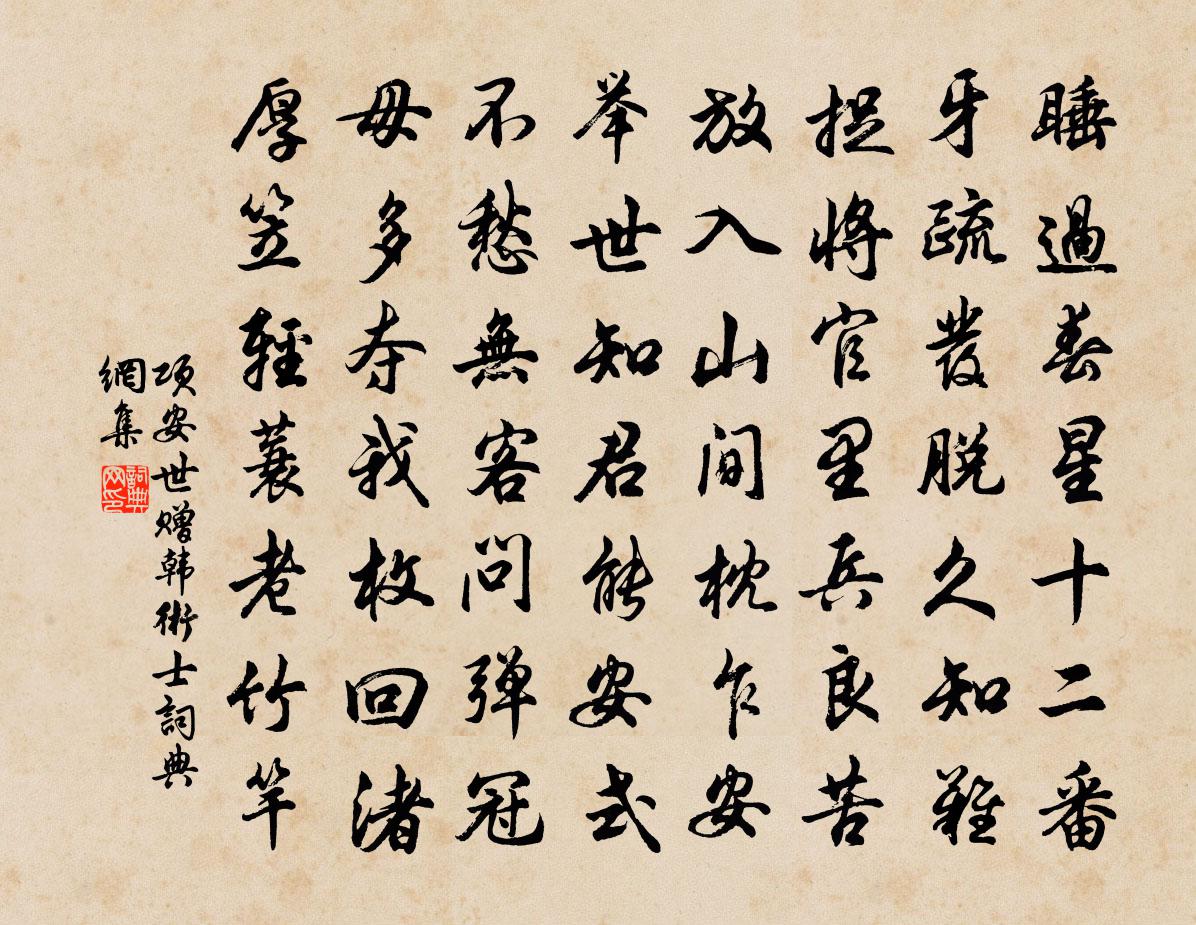 睡過春星十二番
牙疏發脱久知難
捉將官里兵良苦
放入山间枕乍安
举世知君能安式
不愁無客问弹冠
毋多夺我枚回渚
厚笠輕蓑老竹竿
项安世赠韩術士詞典
網集
詞典网印